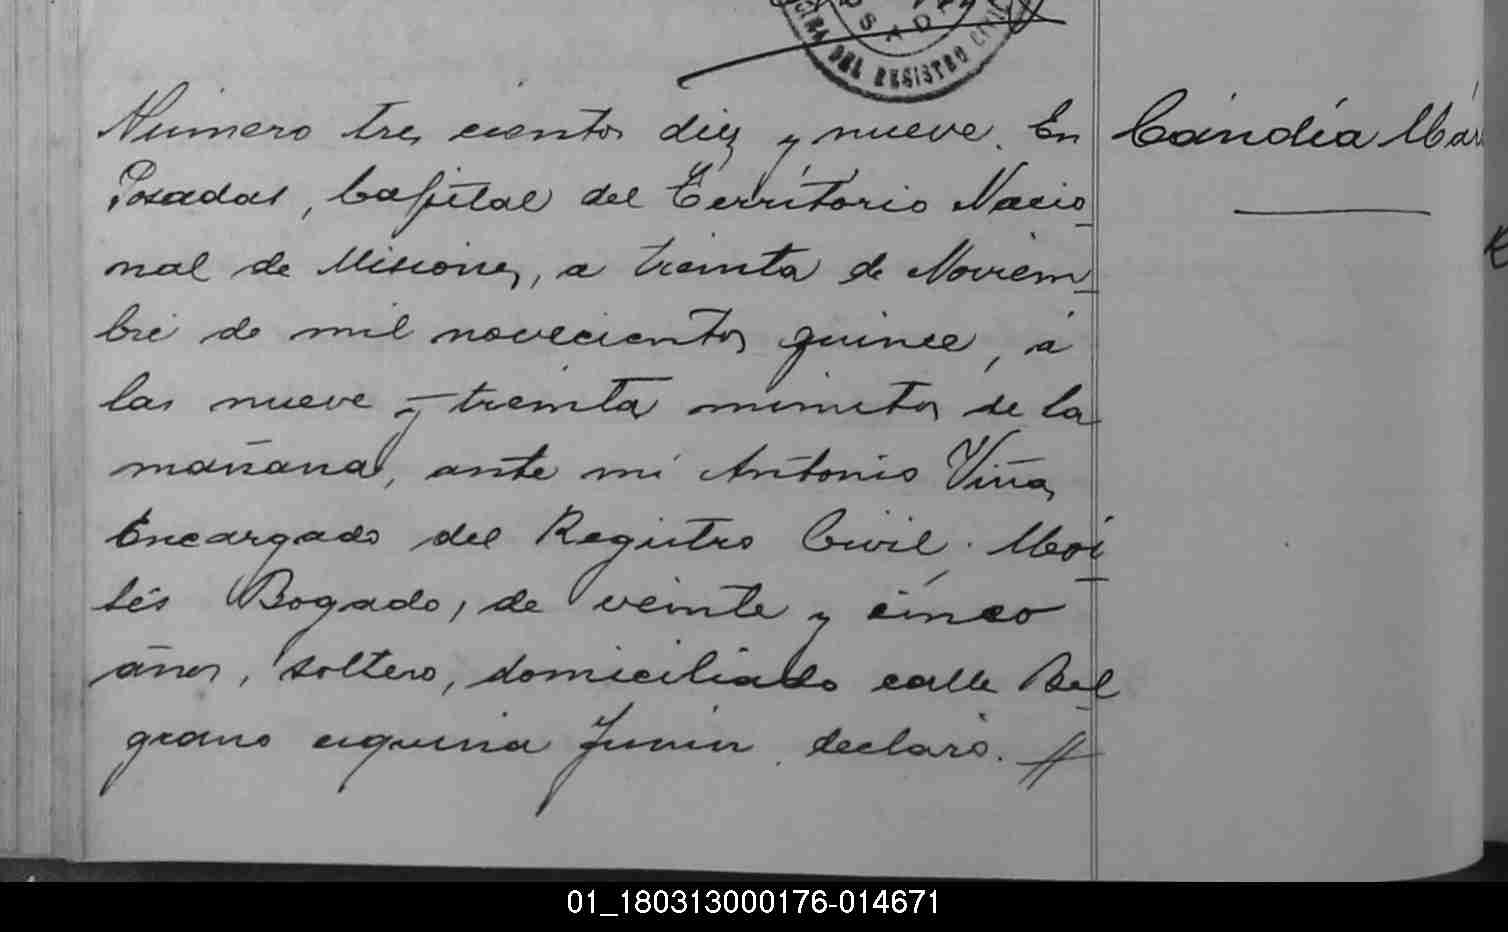 OFICINA DEL REGISTRO CIVIL
Número tres cientos diez y nueve. En
Posadas, Capital del Territorio Nacio
nal de Misiones, a treinta de Noviem
bre de mil novecientos quince, á
las nueve y treinta minutos de la
mañana, ante mi Antonio Viña,
Encargado del Registro Civil, Moi
sés Bogado, de veinte y cinco
años, soltero, domiciliado calle Bel
grano esquina Junin declaró. //
Candía
01_180313000176-014671